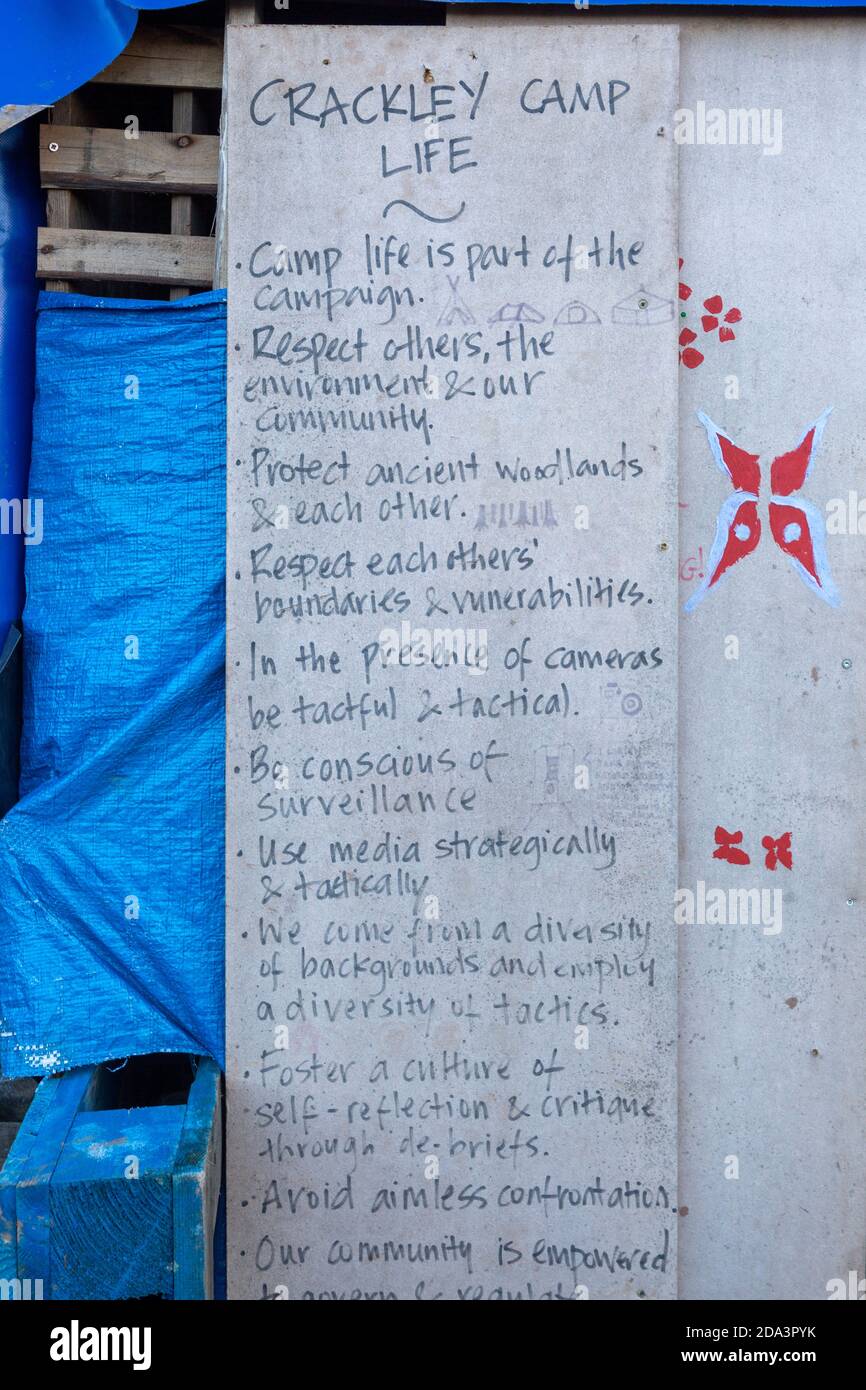 CRACKLEY CAMP
LIFE
· Camp life is part of the
campaign.
· Respect others, the
environment & our
community.
· Protect ancient woodlands
& each other.
· Respect each others'
boundaries & vunerabilities.
G!
· In the presence of cameras
be tactful & tactical.
· Be conscious of
surveillance
· Use media strategically
& tactically
· We come from a diversity
of backgrounds and employ
a diversity of tactics.
· Foster a culture of
self-reflection & critique
through de-briefs.
· Avoid aimless confrontation.
· Our community is empowered
to govern & regulate
alamy
Image ID: 2DA3PYK
www.alamy.com